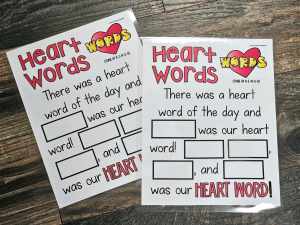 Heart
Words
WORDS
There was a heart
word of the day and
was our heart
word!
, and
was our HEART WORD!
Heart
Words
WORDS
There was a heart
word of the day and
was our heart
word!
,
, and
was our HEART WORD!